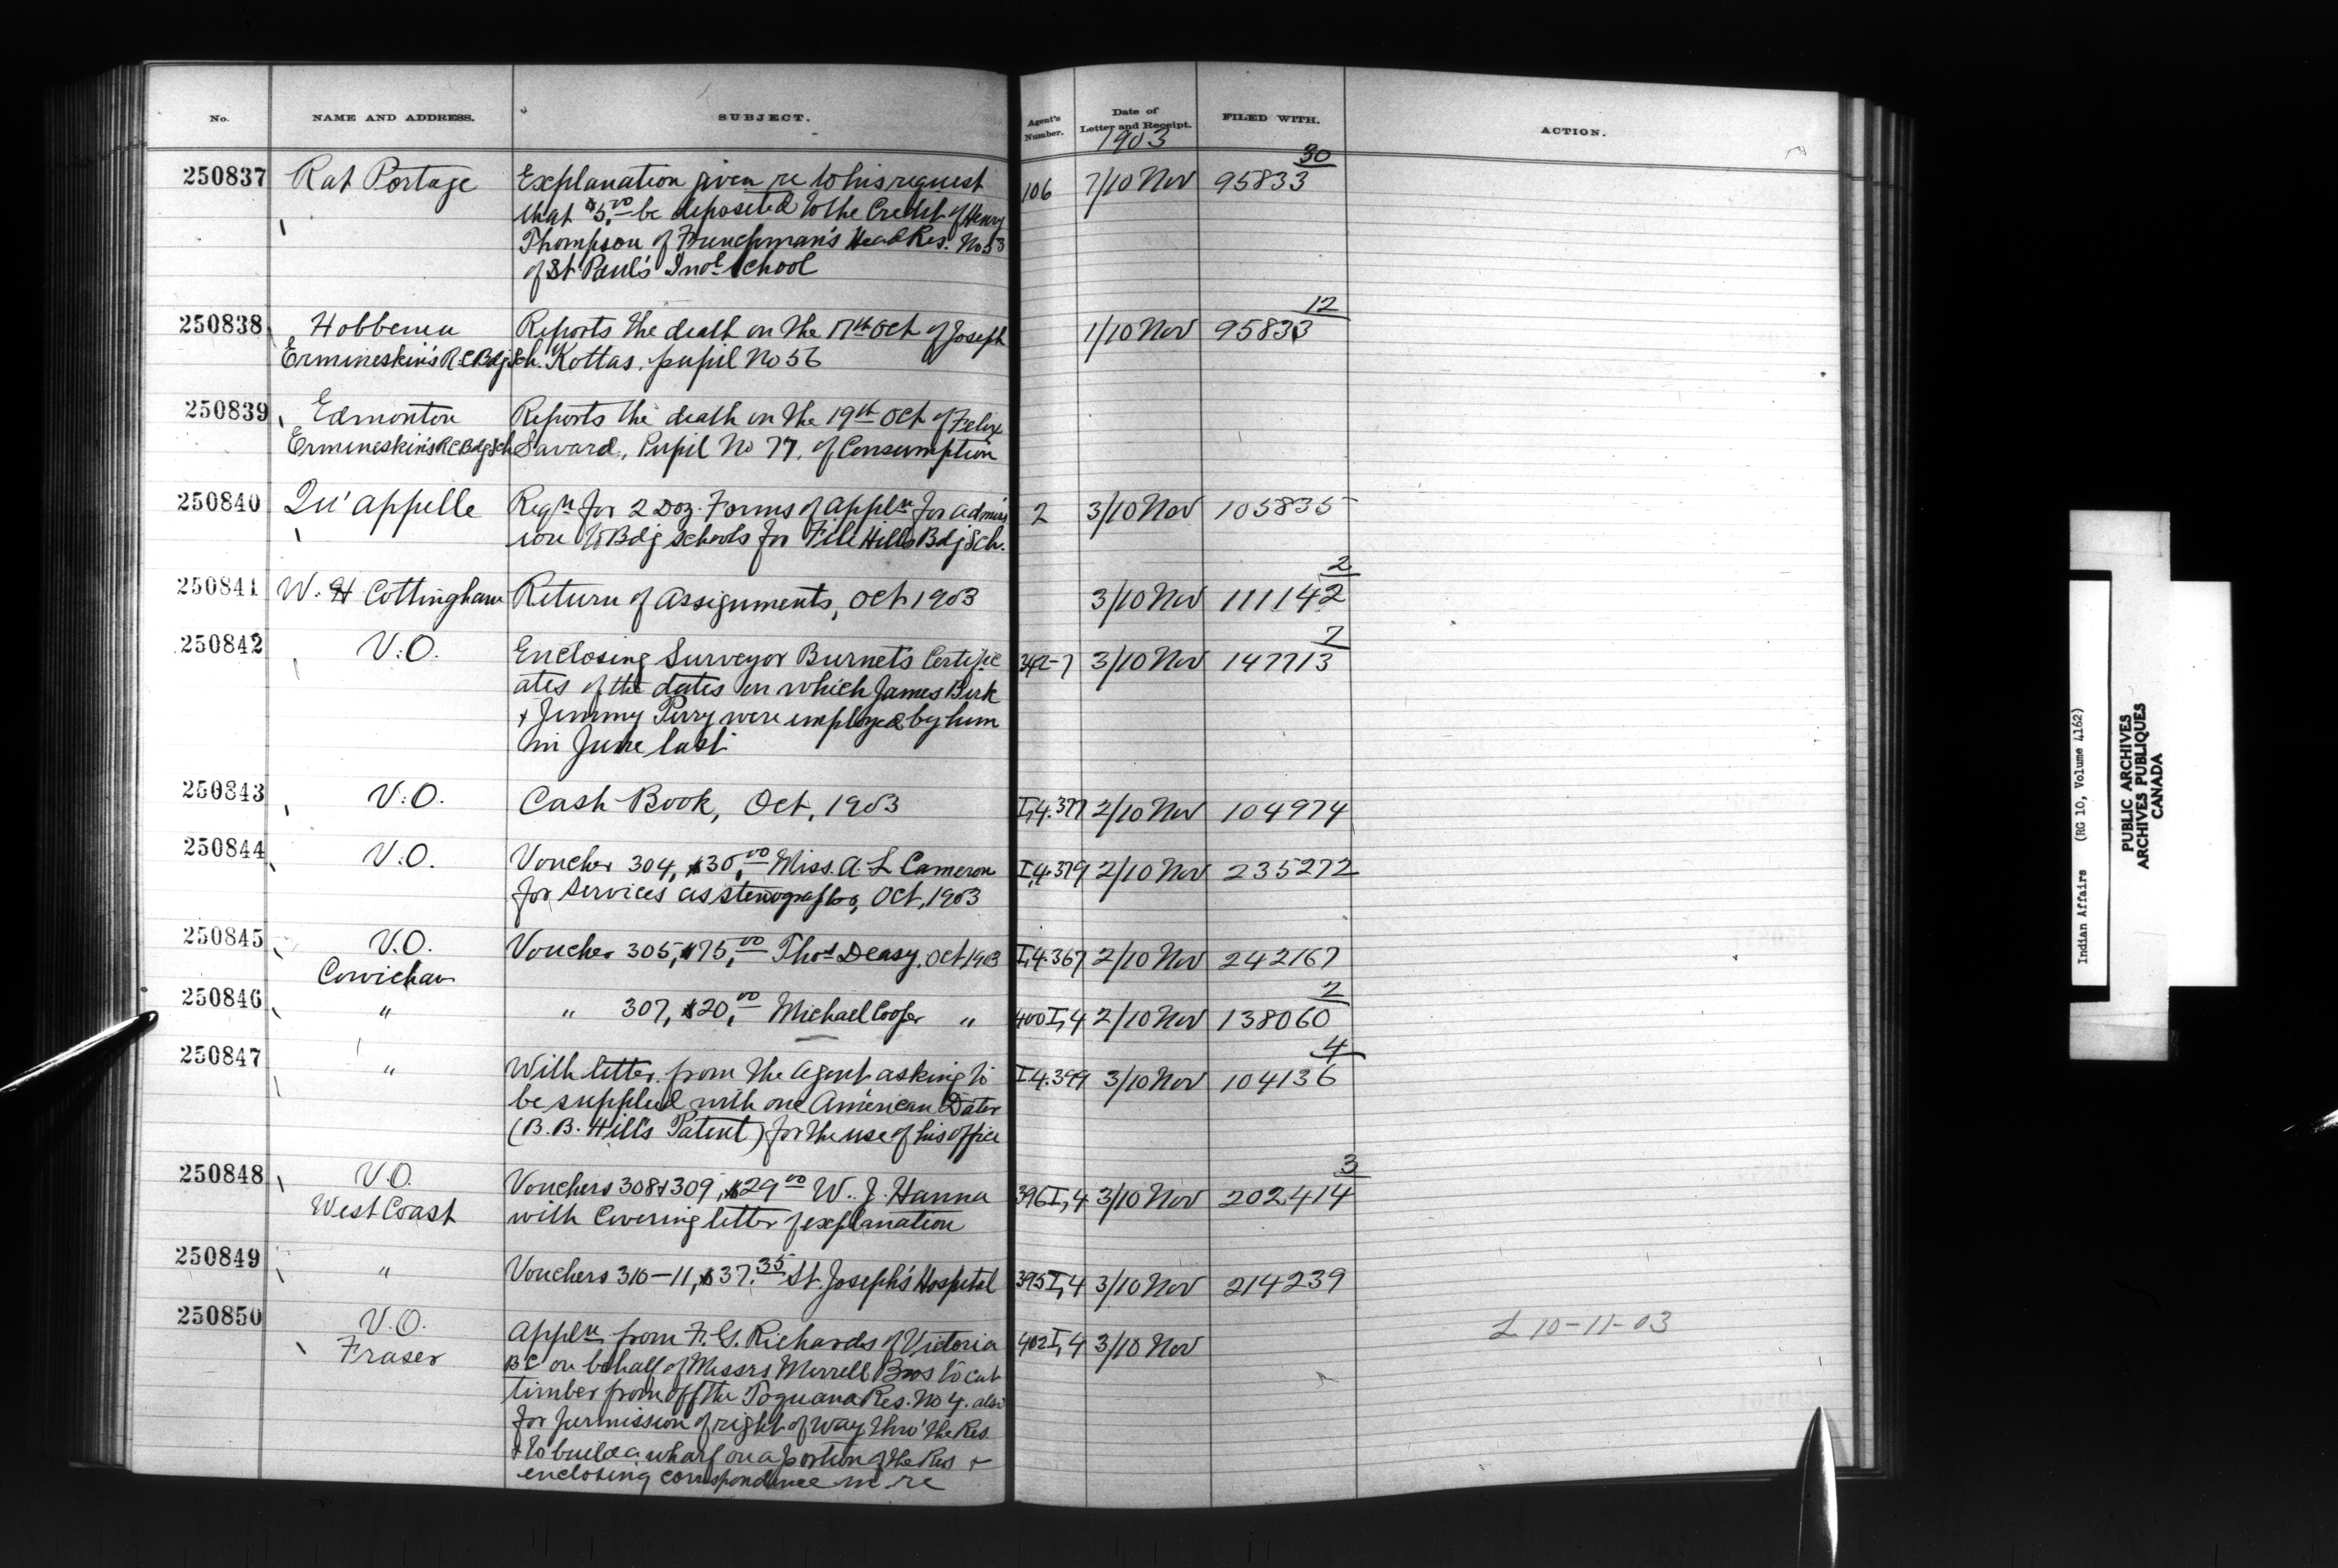 No. NAME AND ADDRESS. SUBJECT. Agent's Number. Date of Letter and Receipt. FILED WITH. ACTION.
1903
250837 Rat Portage Explanation given re to his request 106 7/10 Nov 95833 30
that $5.00 be deposited to the Credit of Henry
Thompson of Frenchman's Head Res. No 53
of St Paul's Indl School
250838 Hobbema Reports the death on the 17th Oct of Joseph 1/10 Nov 95833 12
Ermineskin's R.C Bdg Sch. Kottas, pupil No 56
250839 Edmonton Reports the death on the 19th Oct of Felix
Ermineskin's R C Bdg Sch Savard, Pupil No 77, of Consumption
250840 Qu'appelle Reqn for 2 Doz. Forms of Appln for admiss 2 3/10 Nov 105835
ion to Bdg Schools for File Hills Bdg Sch.
250841 W. H Cottingham Return of Assignments, Oct 1903 3/10 Nov 111142 2
250842 V.O. Enclosing Surveyor Burnet's Certific 3/10 Nov 147713 7
ates of the dates on which James Birk
+ Jimmy Perry were employed by him
in June last
250843 V.O. Cash Book, Oct, 1903 I,4.377 2/10 Nov 104974
250844 V.O. Voucher 304, $30,00 Miss. A. L Cameron I,4.379 2/10 Nov 235272
for Services as Stenographer, Oct, 1903
250845 V.O. Voucher 305, $75,00 Thos Deasy, Oct, 1903 I,4.367 2/10 Nov 242167
Cowichan
250846 " " 307, $20,00 Michael Cooper " 400 I,4 2/10 Nov 138060 2
250847 " With letter from the Agent asking to I,4.399 3/10 Nov 104136 4
be supplied with one American Dater
(B. B. Hill's Patent) for the use of his office
250848 V.O. Vouchers 308 + 309, $29 00 W. J. Hanna 396 I,4 3/10 Nov 202414 3
West Coast with Covering letter of explanation
250849 " Vouchers 310-11, $37.35 St. Joseph's Hospital 395 I,4 3/10 Nov 214239
250850 V.O. Appln from F. G. Richards of Victoria 402 I,4 3/10 Nov L 10-11-03
Fraser BC on behalf of Messrs Merrell Bros to cut
timber from off the Toquana Res. No 4. also
for permission of right of way thro' the Res.
+ to build a wharf on a portion of the Res +
enclosing correspondence in re
Indian Affairs (RG 10, Volume 4162)
PUBLIC ARCHIVES
ARCHIVES PUBLIQUES
CANADA